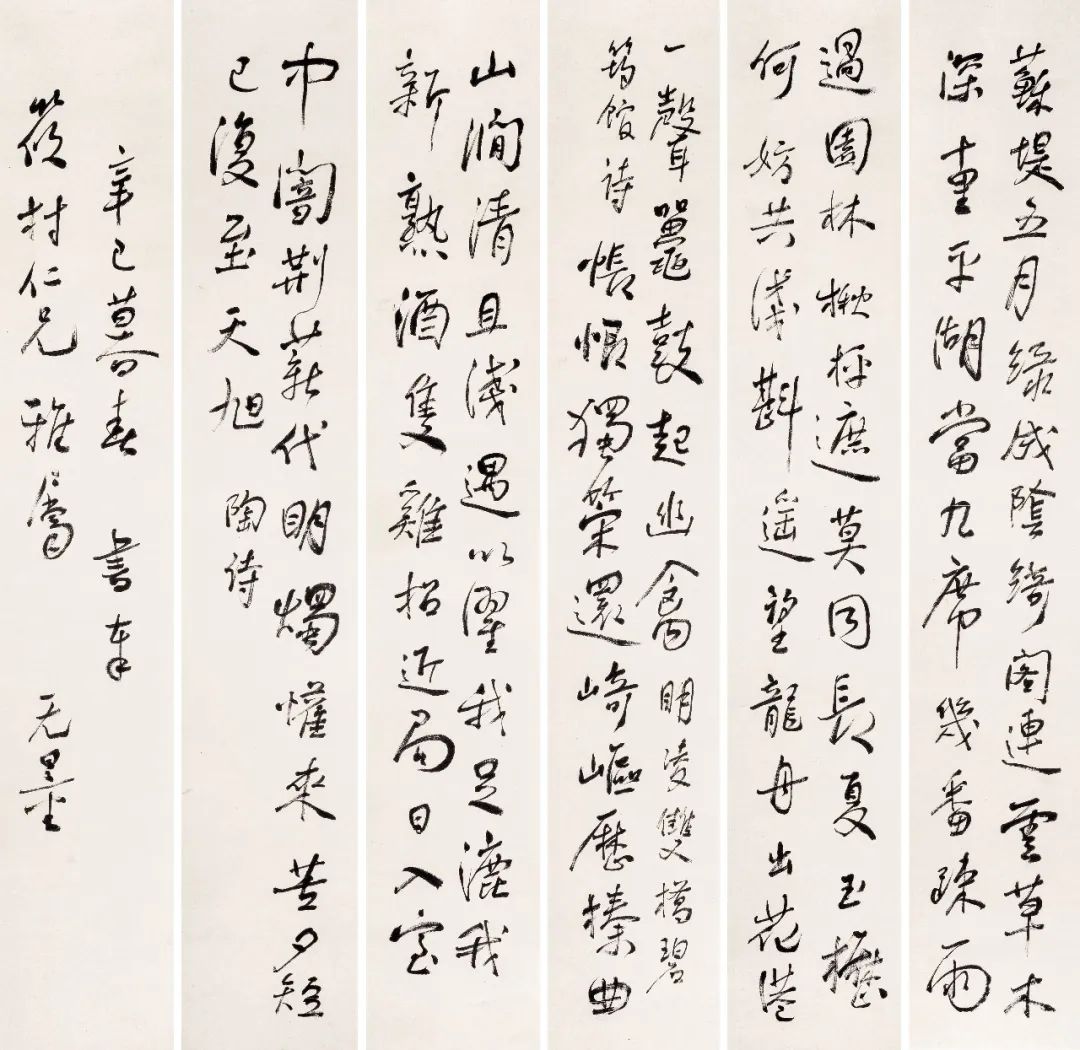 蘇堤五月綠成陰綺閣連雲草木
深十里平湖當几席幾番疎雨
過園林楸枰遮莫同長夏玉
何妨共淺斟遥望龍舟出花港
一聲鼉鼓起幽禽 明凌雙橋碧
筠館诗 悵恨獨策還崎嶇歷榛曲
山澗清且淺遇以濯我足漉我
新熟酒隻雞招近局日入室
中闇荆薪代明燭懽來苦夕短
已復至天旭 陶诗
辛巳暮春 書奉
筱村仁兄雅屬 无量